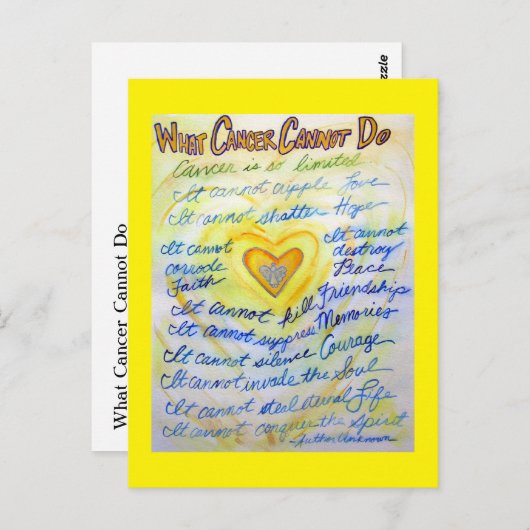 WHAT CANCER CANNOT DO
Cancer is so limited...
It cannot cripple Love
It cannot shatter Hope
It cannot
corrode
Faith
It cannot
destroy
Peace
It cannot kill Friendship
It cannot suppress Memories
It cannot silence Courage
It cannot invade the Soul
It cannot steal eternal Life
It cannot conquer the Spirit
-Author Unknown
What Cancer Cannot Do
zzle